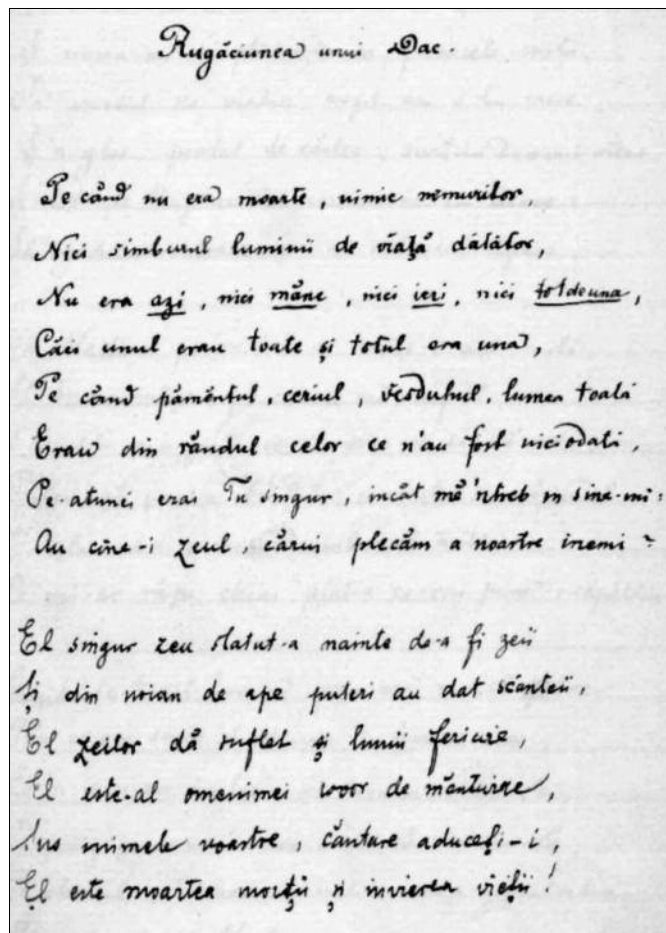 Rugăciunea unui Dac.
Pe când nu era moarte, nimic nemuritor,
Nici simburul luminii de viață dătător,
Nu era azi, nici mâne, nici ieri, nici totdeuna,
Căci unul erau toate și totul era una,
Pe când pământul, ceriul, vesduhul, lumea toată
Erau din rândul celor ce n'au fost niciodată,
Pe-atunci erai Tu singur, încât mĕ 'ntreb in sine-mi:
Au cine-i zeul, cărui plecăm a noastre inemi?
El singur zeu statut-a nainte de-a fi zeii
Și din noian de ape puteri au dat scânteii,
El zeilor dă suflet și lumii fericire,
El este-al omenimei isvor de mântuire,
Sus inimele voastre, cântare aduceți-i,
El este moartea morții și invierea vieții!